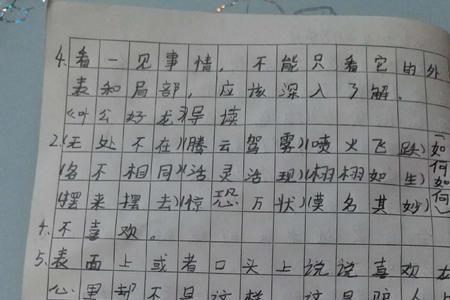 4.看一见事情,不能只看它的外
表和局部,应该深入了解。
《叶公好龙》导读
2.(无处不在)(腾云驾雾)(喷火飞跃)(如何如何)
(各不相同)(活灵活现)(栩栩如生)
(摆来摆去)(惊恐万状)(莫名其妙)
4.不喜欢。
5.表面上或者口头上说说喜欢